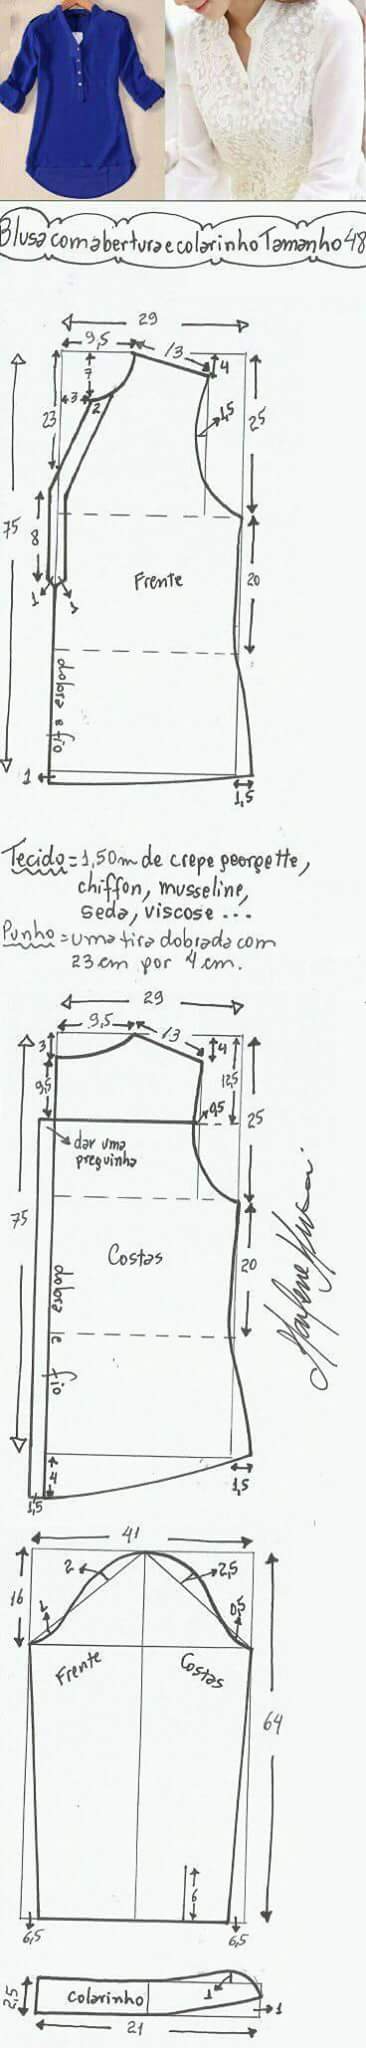 Blusa com abertura e colarinho Tamanho 48
29
9,5
13
7
4
3
2
23
1,5
25
75
8
1
1
Frente
20
dobra e fio
1
1,5
Tecido = 1,50m de crepe georgette,
chiffon, musseline,
seda, viscose ...
Punho = uma tira dobrada com
23 cm por 4 cm.
29
9,5
13
3
4
9,5
12,5
0,5
25
dar uma
preguinha
75
Costas
20
dobra e fio
4
1,5
1,5
41
2
2,5
16
1
0,5
Frente
Costas
64
6
6,5
6,5
2,5
colarinho
1
1
21